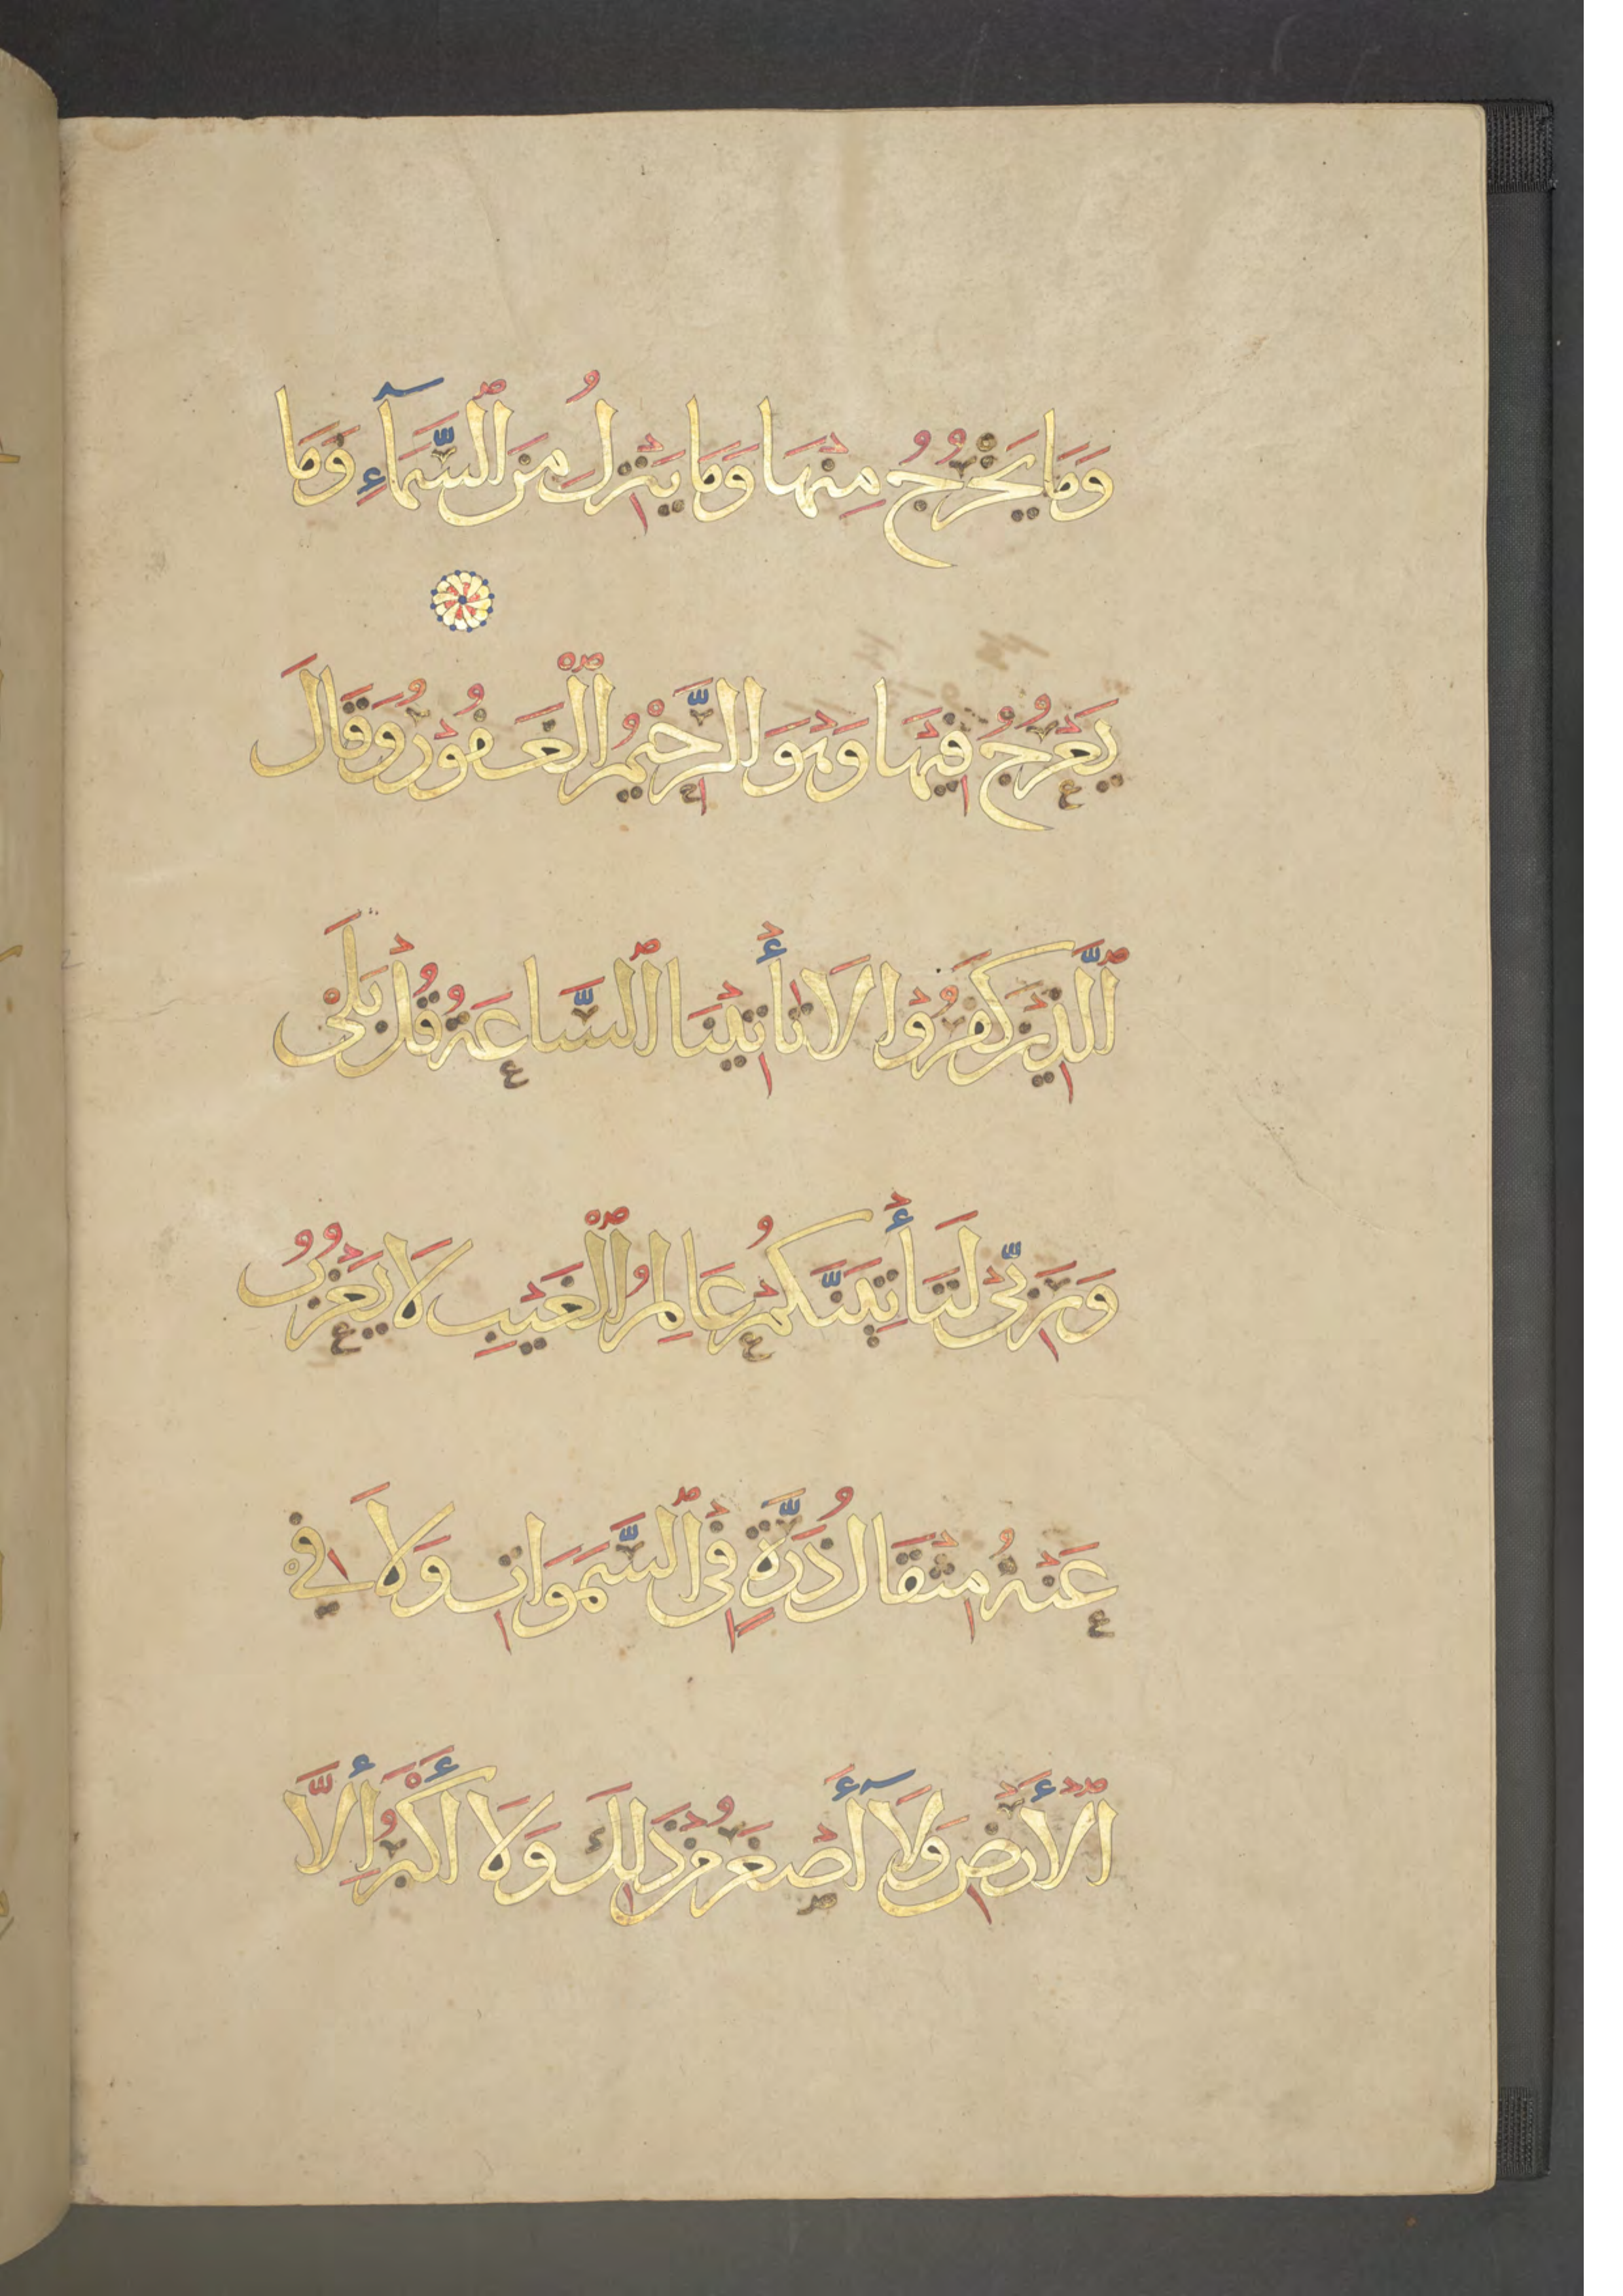 وَمَا يَخْرُجُ مِنْهَا وَمَا يَنْزِلُ مِنَ ٱلسَّمَآءِ وَمَا
يَعْرُجُ فِيْهَا وَهْوَ الرَّحِيْمُ ٱلْغَفُوْرُ وَقَالَ
ٱلَّذِيْنَ كَفَرُوْا لَا تَأْتِيْنَا ٱلسَّاعَةُ قُلْ بَلَىٰ
وَرَبِّيْ لَتَأْتِيَنَّكُمْ عَالِمُ ٱلْغَيْبِ لَا يَعْزُبُ
عَنْهُ مِثْقَالُ ذَرَّةٍ فِى ٱلسَّمَوَاتِ وَلَا فِي
ٱلْأَرْضِ وَلَآ أَصْغَرُ مِنْ ذَلِكَ وَلَا أَكْبَرُ إِلَّا